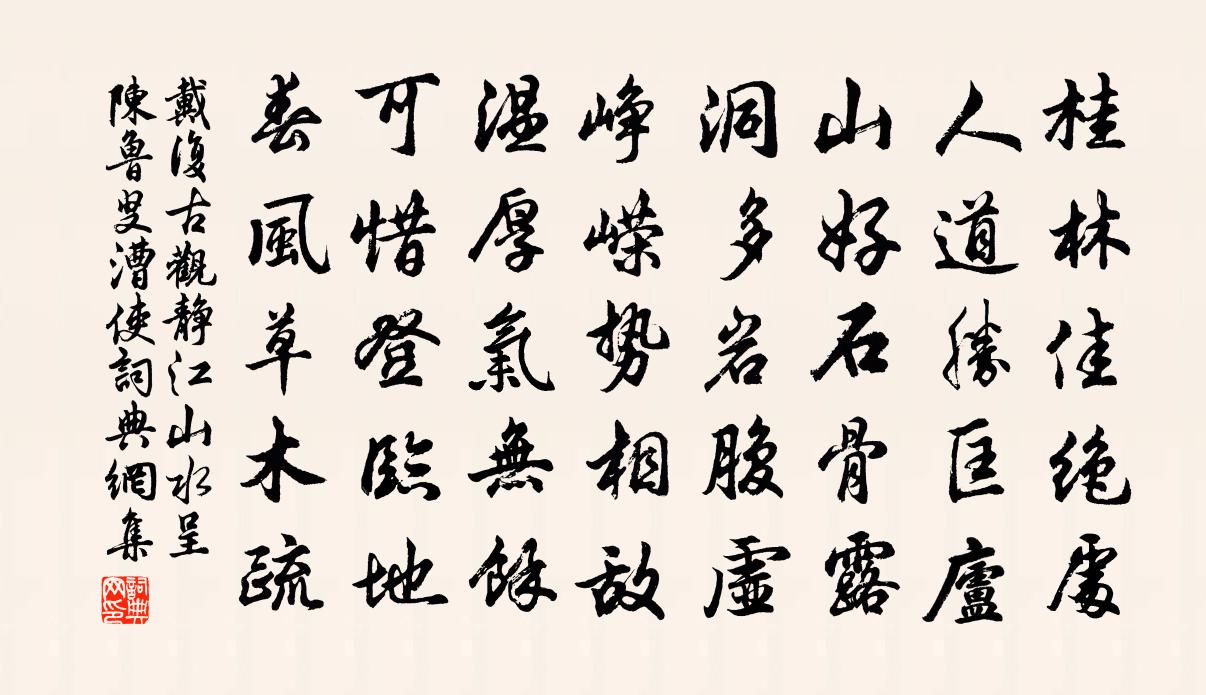 桂林佳绝處
人道勝匡廬
山好石骨露
洞多岩腹虛
峥嵘势相敌
温厚氣無餘
可惜登臨地
春風草木疏
戴復古觀静江山水呈
陳魯叟漕使詞典網集
詞典网印